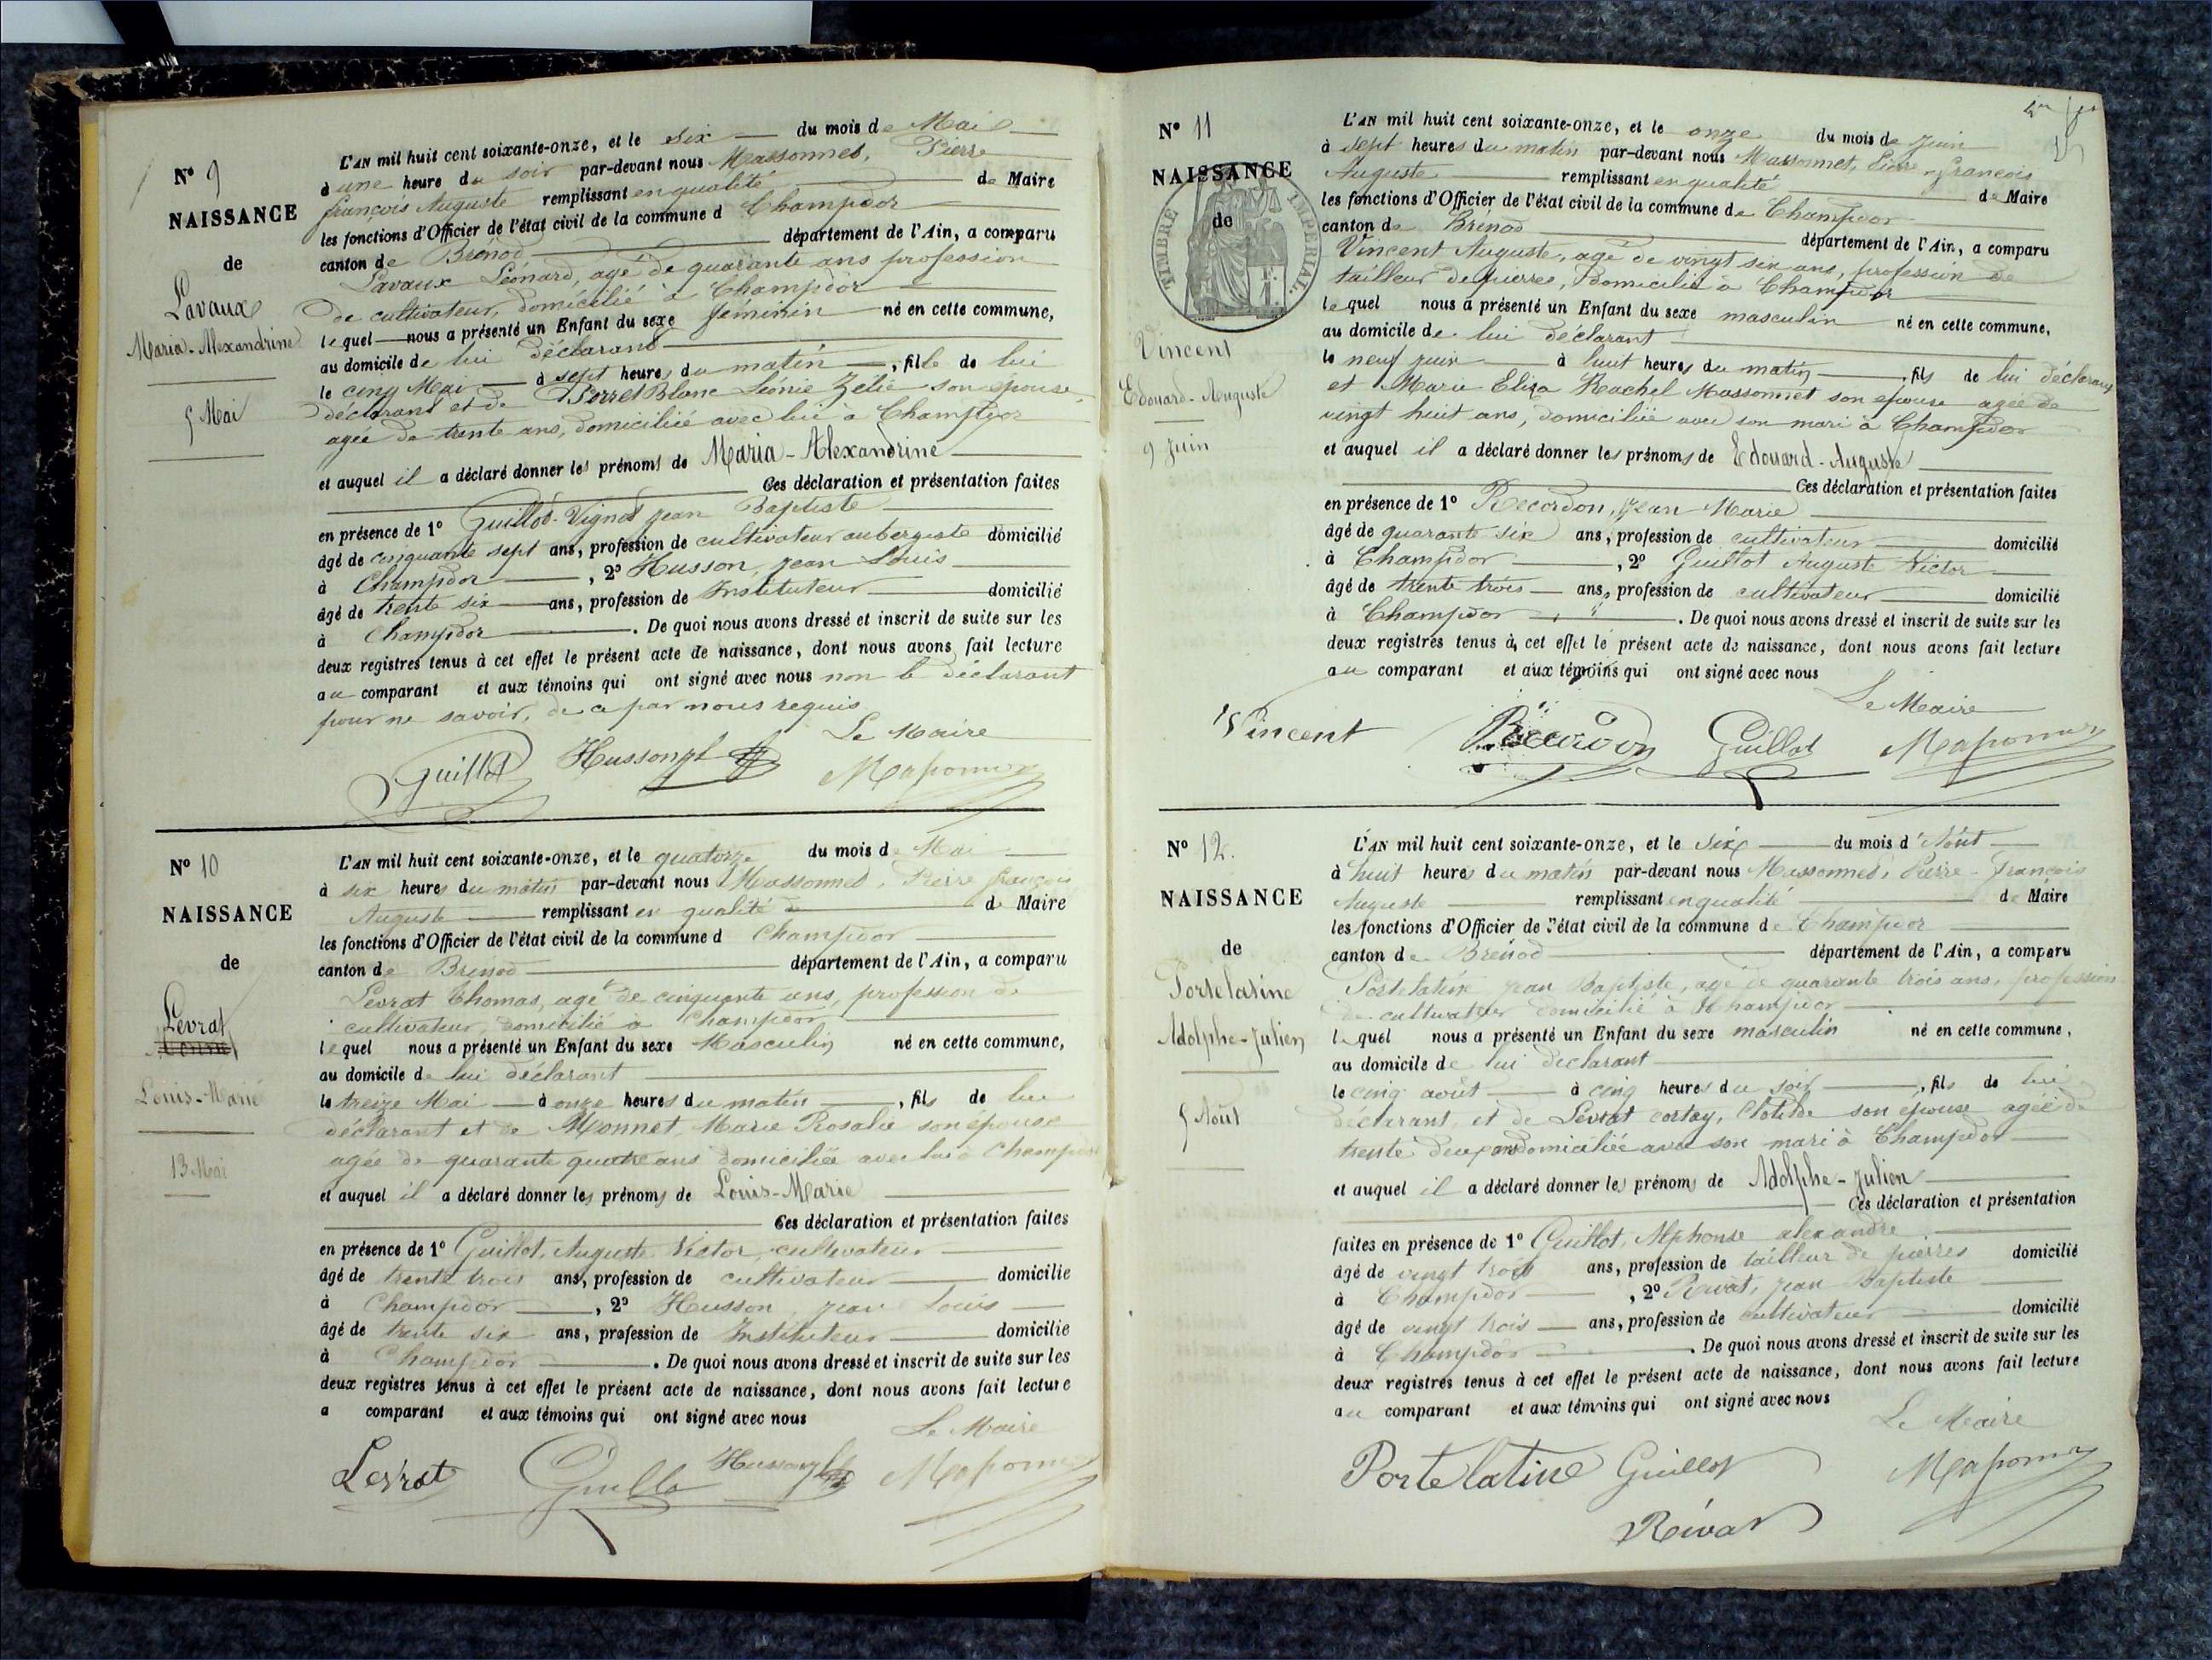 N° 9
NAISSANCE
de
Lavaux
Maria-Alexandrine
5 Mai
L'AN mil huit cent soixante-onze, et le six du mois de Mai
à une heure du soir par-devant nous Massonnet, Pierre
françois Auguste remplissant en qualité de Maire
les fonctions d'Officier de l'état civil de la commune d Champdor
canton de Brénod département de l'Ain, a comparu
Lavaux Léonard, agé de quarante ans profession
de cultivateur, domicilié à Champdor
lequel nous a présenté un Enfant du sexe féminin né en cette commune,
au domicile de lui déclarant
le cinq Mai à sept heures du matin, fille de lui
déclarant et de Perret Blanc Léonie Zélie son épouse
agée de trente ans, domiciliée avec lui à Champdor
et auquel il a déclaré donner les prénoms de Maria-Alexandrine
Ces déclaration et présentation faites
en présence de 1° Guillot-Vignot jean Baptiste
âgé de cinquante sept ans, profession de cultivateur aubergiste domicilié
à Champdor, 2° Husson, jean Louis
âgé de trente six ans, profession de Instituteur domicilié
à Champdor. De quoi nous avons dressé et inscrit de suite sur les
deux registres tenus à cet effet le présent acte de naissance, dont nous avons fait lecture
au comparant et aux témoins qui ont signé avec nous non le déclarant
pour ne savoir, de ce par nous requis
Le Maire
Guillot Husson jl Massonnet
N° 10
NAISSANCE
de
Levrat
Louis-Marie
13 Mai
L'AN mil huit cent soixante-onze, et le quatorze du mois de Mai
à six heures du matin par-devant nous Massonnet, Pierre françois
Auguste remplissant en qualité de Maire
les fonctions d'Officier de l'état civil de la commune d Champdor
canton de Brénod département de l'Ain, a comparu
Levrat Thomas, agé de cinquante ans, profession de
cultivateur, domicilié à Champdor
lequel nous a présenté un Enfant du sexe Masculin né en cette commune,
au domicile de lui déclarant
le treize Mai à onze heures du matin, fils de lui
déclarant et de Monnet, Marie Rosalie son épouse
agée de quarante quatre ans domiciliée avec lui à Champdor
et auquel il a déclaré donner les prénoms de Louis-Marie
Ces déclaration et présentation faites
en présence de 1° Guillot, Auguste Victor, cultivateur
âgé de trente trois ans, profession de cultivateur domicilié
à Champdor, 2° Husson, jean Louis
âgé de trente six ans, profession de Instituteur domicilié
à Champdor. De quoi nous avons dressé et inscrit de suite sur les
deux registres tenus à cet effet le présent acte de naissance, dont nous avons fait lecture
a comparant et aux témoins qui ont signé avec nous
Le Maire
Levrat Guillo Husson jl Massonnet
N° 11
NAISSANCE
de
TIMBRE IMPERIAL
Vincent
Edouard-Auguste
9 juin
L'AN mil huit cent soixante-onze, et le onze du mois de juin
à sept heures du matin par-devant nous Massonnet, Pierre-françois
Auguste remplissant en qualité de Maire
les fonctions d'Officier de l'état civil de la commune de Champdor
canton de Brénod département de l'Ain, a comparu
Vincent Auguste, agé de vingt six ans, profession de
tailleur de pierres, domicilié à Champdor
lequel nous a présenté un Enfant du sexe masculin né en cette commune,
au domicile de lui déclarant
le neuf juin à huit heures du matin, fils de lui déclarant
et Marie Eliza Rachel Massonnet son épouse agée de
vingt huit ans, domiciliée avec son mari à Champdor
et auquel il a déclaré donner les prénoms de Edouard-Auguste
Ces déclaration et présentation faites
en présence de 1° Recordon, Jean Marie
âgé de quarante six ans, profession de cultivateur domicilié
à Champdor, 2° Guillot Auguste Victor
âgé de trente trois ans, profession de cultivateur domicilié
à Champdor. De quoi nous avons dressé et inscrit de suite sur les
deux registres tenus à cet effet le présent acte de naissance, dont nous avons fait lecture
au comparant et aux témoins qui ont signé avec nous
Le Maire
Vincent Recordon Guillot Massonnet
N° 12.
NAISSANCE
de
Portelatine
Adolphe-Julien
5 Août
L'AN mil huit cent soixante-onze, et le six du mois d'Août
à huit heures du matin par-devant nous Massonnet, Pierre-François
Auguste remplissant en qualité de Maire
les fonctions d'Officier de l'état civil de la commune de Champdor
canton de Brénod département de l'Ain, a comparu
Portelatine jean Baptiste, agé de quarante trois ans, profession
de cultivateur domicilié à Champdor
lequel nous a présenté un Enfant du sexe masculin né en cette commune,
au domicile de lui déclarant
le cinq août à cinq heures du soir, fils de lui
déclarant, et de Levrat cortay, Clotilde son épouse agée de
trente deux ans domiciliée avec son mari à Champdor
et auquel il a déclaré donner les prénoms de Adolphe-Julien
Ces déclaration et présentation
faites en présence de 1° Guillot, Alphonse alexandre
âgé de vingt trois ans, profession de tailleur de pierres domicilié
à Champdor, 2° Rivat, jean Baptiste
âgé de vingt trois ans, profession de cultivateur domicilié
à Champdor. De quoi nous avons dressé et inscrit de suite sur les
deux registres tenus à cet effet le présent acte de naissance, dont nous avons fait lecture
au comparant et aux témoins qui ont signé avec nous
Le Maire
Portelatine Guillot Massonnet
Rivat